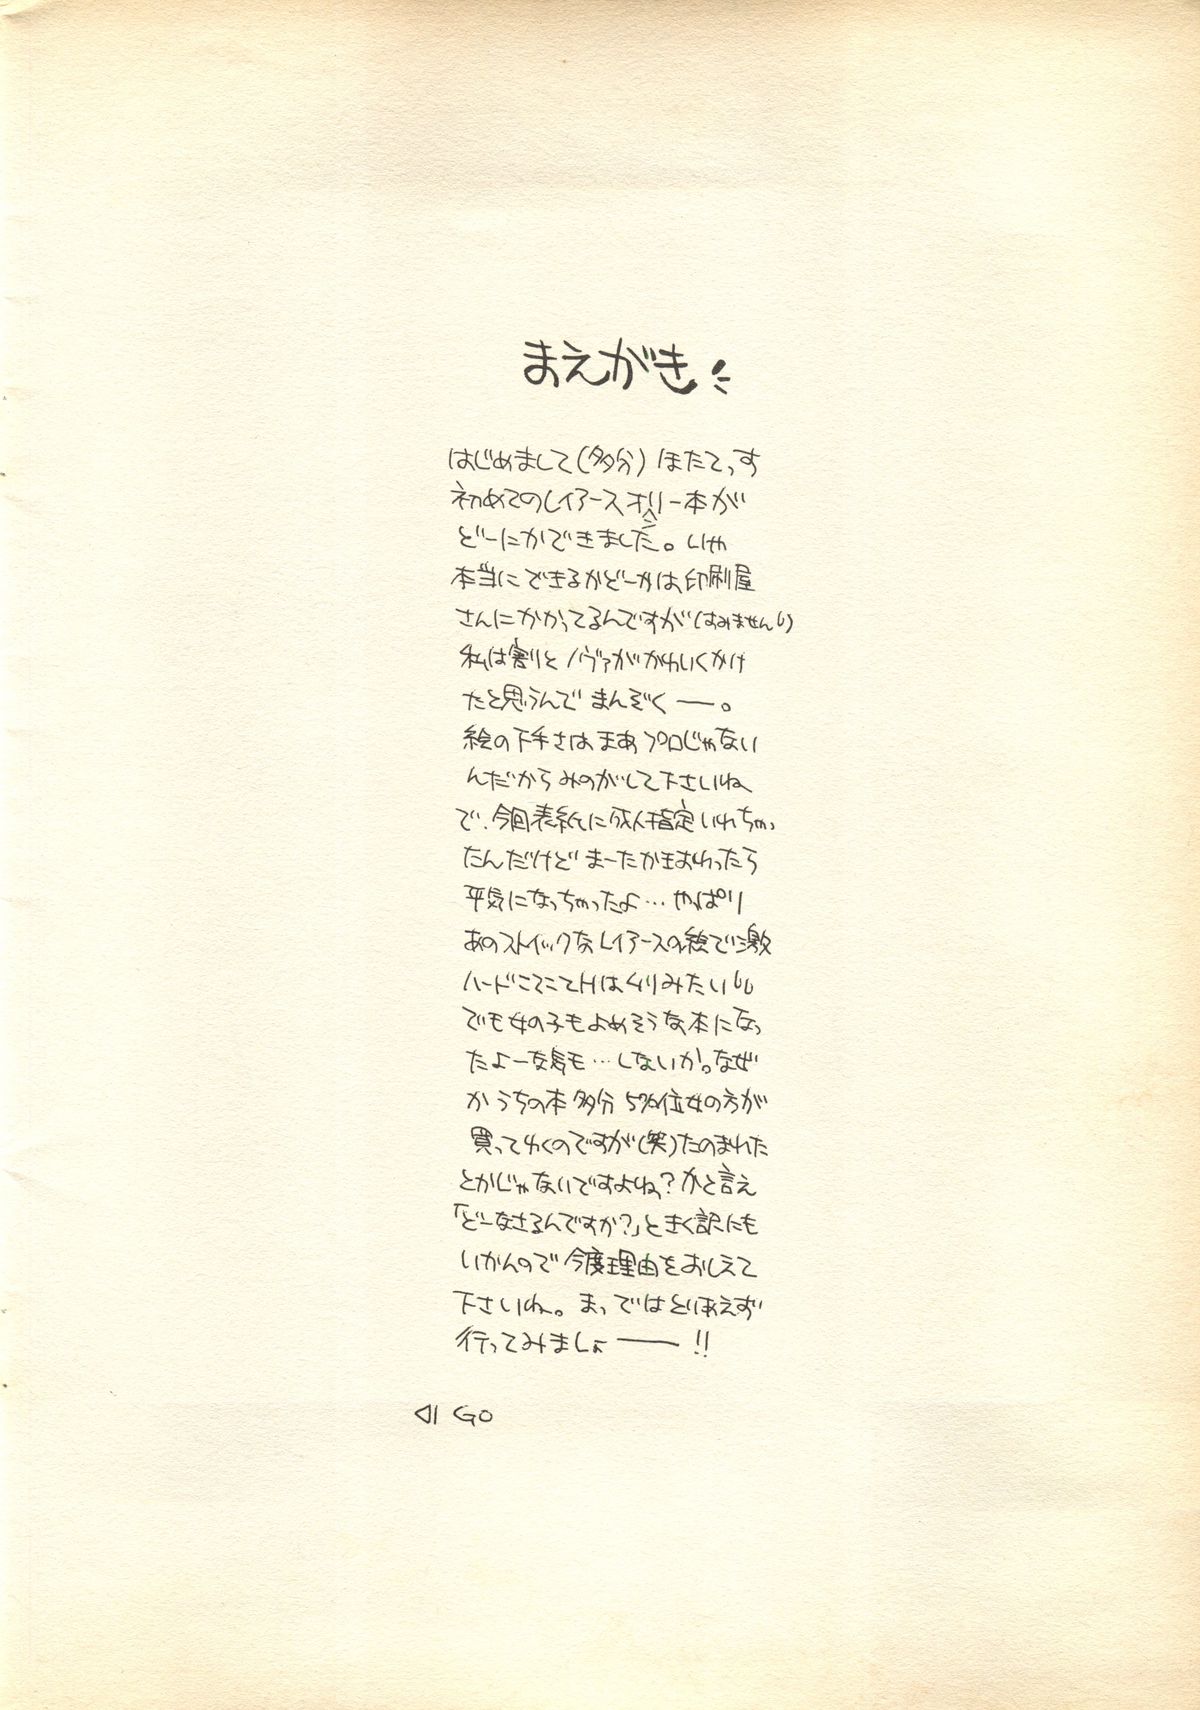 まえがき
はじめまして(多分)ほたてっす
初めてのレイアースオンリー本が
どーにかできました。いや
本当にできるかどーかは、印刷屋
さんにかかってるんですが(すみません)
私は割とノヴァがかわいくかけ
たと思うんでまんぞくー。
絵の下手さは、まあプロじゃない
んだからみのがして下さいね
で、今回表紙に成人指定いれちゃっ
たんだけどまーたかきおわったら
平気になっちゃったよ…やっぱり
あのストイックなレイアースの絵で激
ハードにてこてHはムリみたい
でも女の子もよめそうな本になっ
たよーな気も…しないか。なぜ
かうちの本多分5%位女の方が
買ってゆくのですが(笑)たのまれた
とかじゃないですよね?かと言え
「どーなさるんですか?」ときく訳にも
いかんので今度理由をおしえて
下さいね。まっではとりあえず
行ってみましょー!!
GO